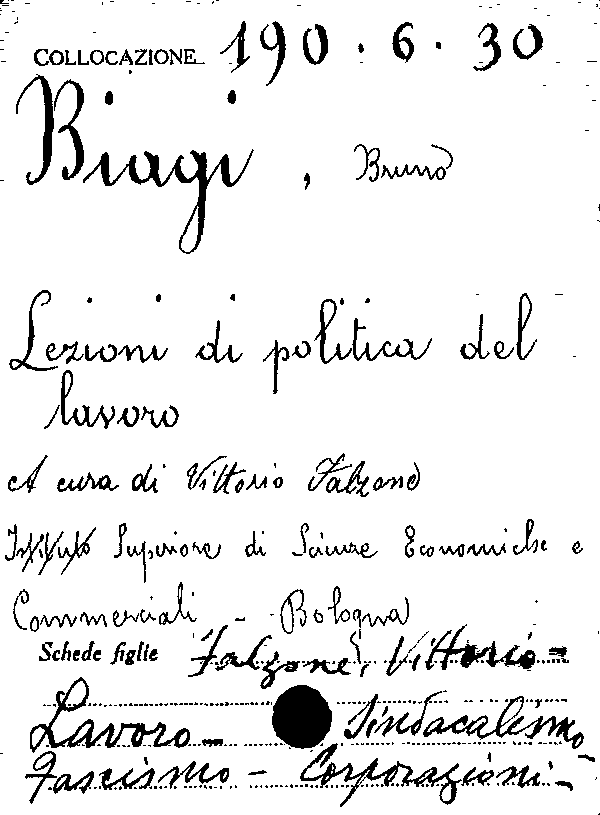 COLLOCAZIONE 190.6.30
Biagi, Bruno
Lezioni di politica del
lavoro
A cura di Vittorio Falzone
Istituto Superiore di Scienze Economiche e
Commerciali - Bologna
Schede figlie Falzone, Vittorio -
Lavoro - Sindacalismo -
Fascismo - Corporazioni -